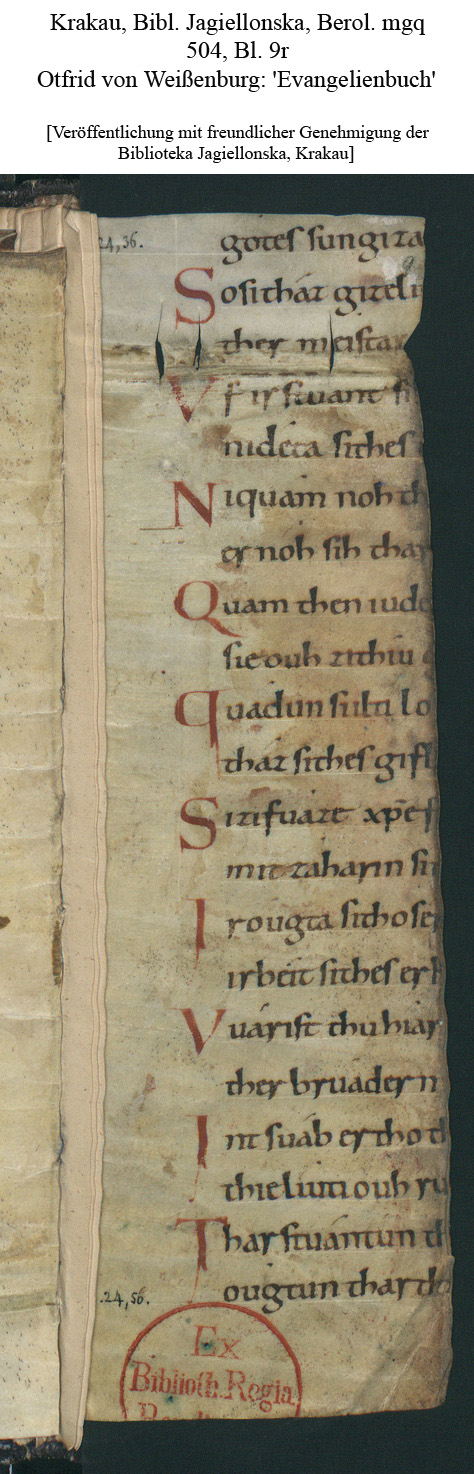 Krakau, Bibl. Jagiellonska, Berol. mgq
504, Bl. 9r
Otfrid von Weißenburg: 'Evangelienbuch'
[Veröffentlichung mit freundlicher Genehmigung der
Biblioteka Jagiellonska, Krakau]
24,36.
gotes sun giza
Sosi thaz gizeli
ther meistar
Vf irstuant si
nideta si thes
Niquam noh th
er noh sih thar
Quam then iude
sie ouh zi thiu
Quadun sulti lo
thaz si thes gifl
Si zi fuaze xpes
mit zaharin si
Irougta si tho ser
irbeit si thes er
Vuárist thu hiar
ther bruader m
Intsuab er tho th
thie liuti ouh ru
Thar stuantun th
ougtun thar th
.24,56.
Ex
Biblioth. Regia